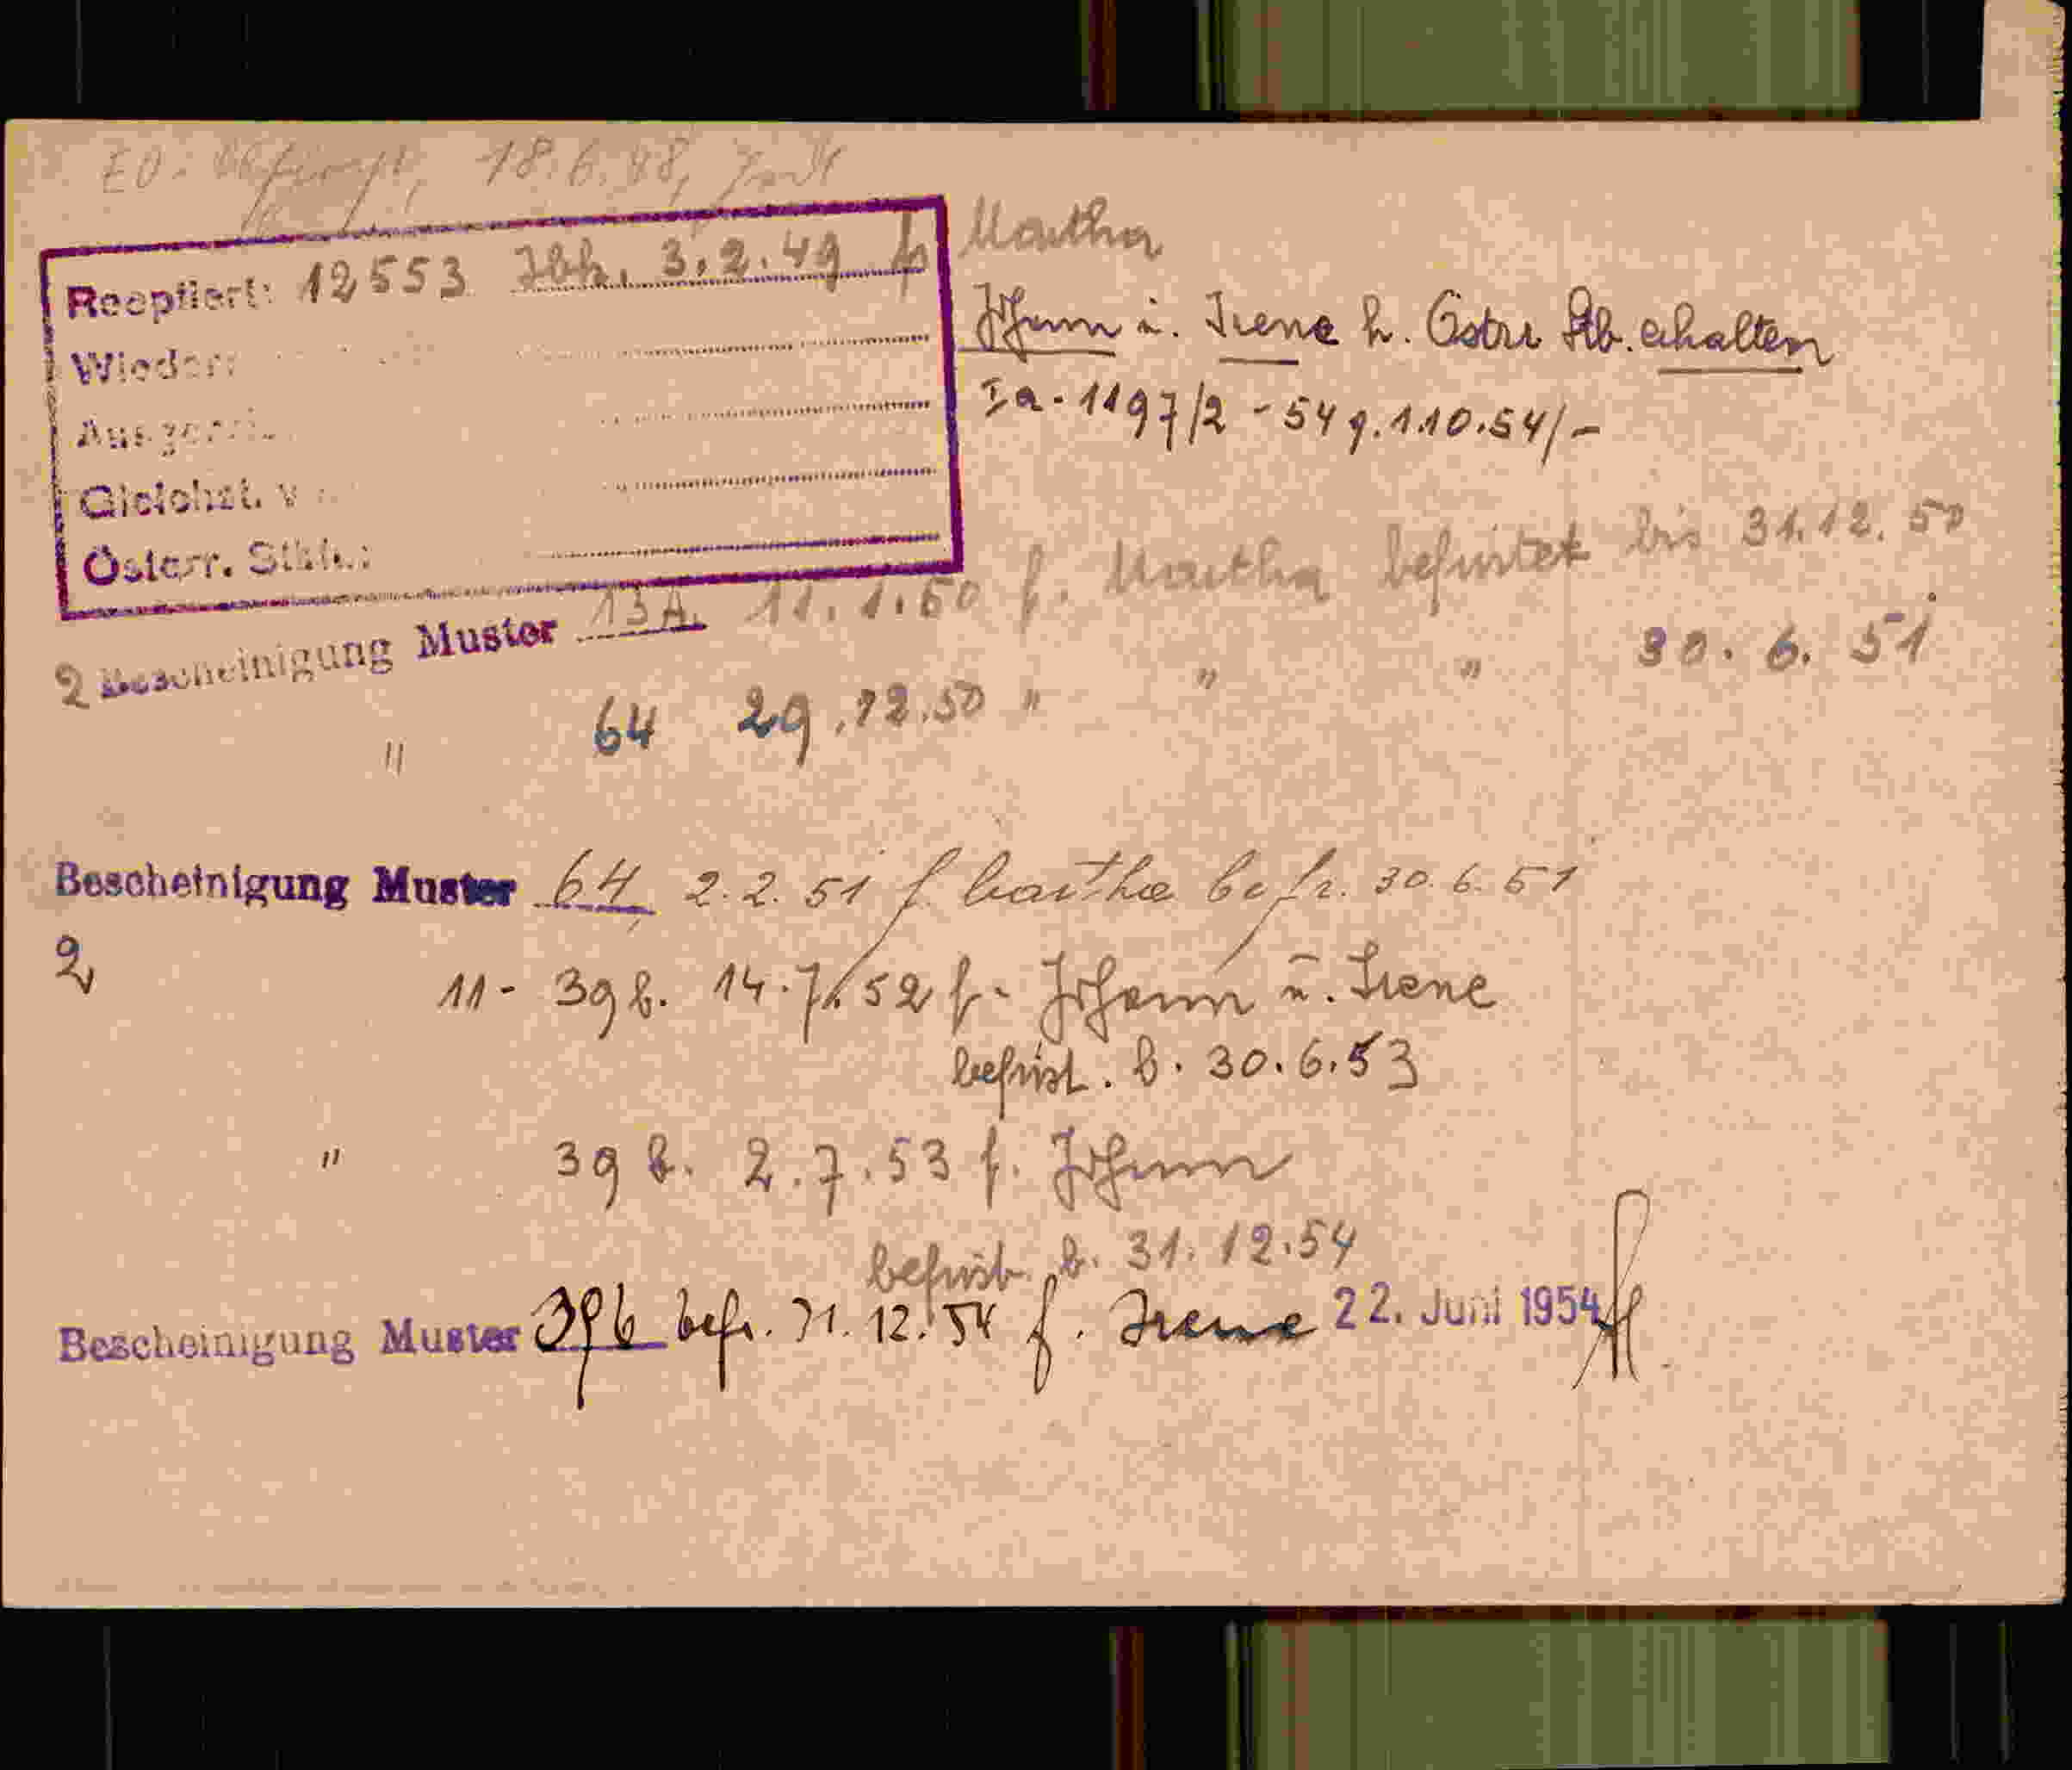 EO. 18.6.48,
Reoptiert: 12553 Ibk. 3.2.49 f. Martha
Wieder:
Johann u. Irene h. Östrr Stb. erhalten
Ausgereist
Ia-1197/2-54 g. 1.10.54/-
Gleichst. v
Österr. Stbh.:
2 Bescheinigung Muster 13A. 11.1.50 f. Martha befristet bis 31.12.50
" 64 29.12.50 " " " 30.6.51
Bescheinigung Muster 64, 2.2.51 f. Martha befr. 30.6.51
2 11- 39b. 14.7.52 f. Johann u. Irene
befrist. b. 30.6.53
" 39b. 2.7.53 f. Johann
befrist. b. 31.12.54
Bescheinigung Muster 39b befr. 31.12.54 f. Irene 22. Juni 1954